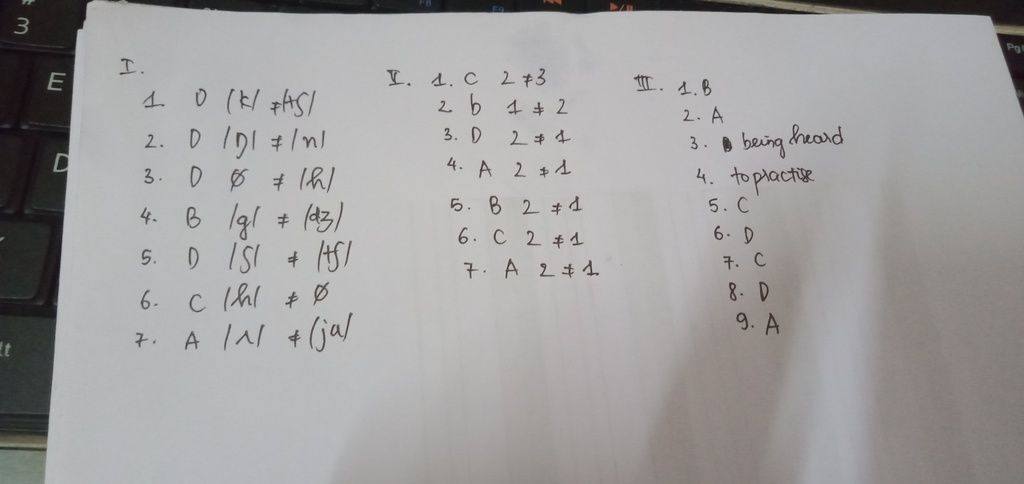 I.
1 D /k/ ≠ /tʃ/
2. D /ŋ/ ≠ /n/
3. D ∅ ≠ /h/
4. B /g/ ≠ /dʒ/
5. D /ʃ/ ≠ /tʃ/
6. C /h/ ≠ ∅
7. A /ʌ/ ≠ /ju/
II. 1. C 2 ≠ 3
2 b 1 ≠ 2
3. D 2 ≠ 1
4. A 2 ≠ 1
5. B 2 ≠ 1
6. C 2 ≠ 1
7. A 2 ≠ 1
III. 1. B
2. A
3. being heard
4. to practise
5. C
6. D
7. C
8. D
9. A
#
3
E
D
F8
F9